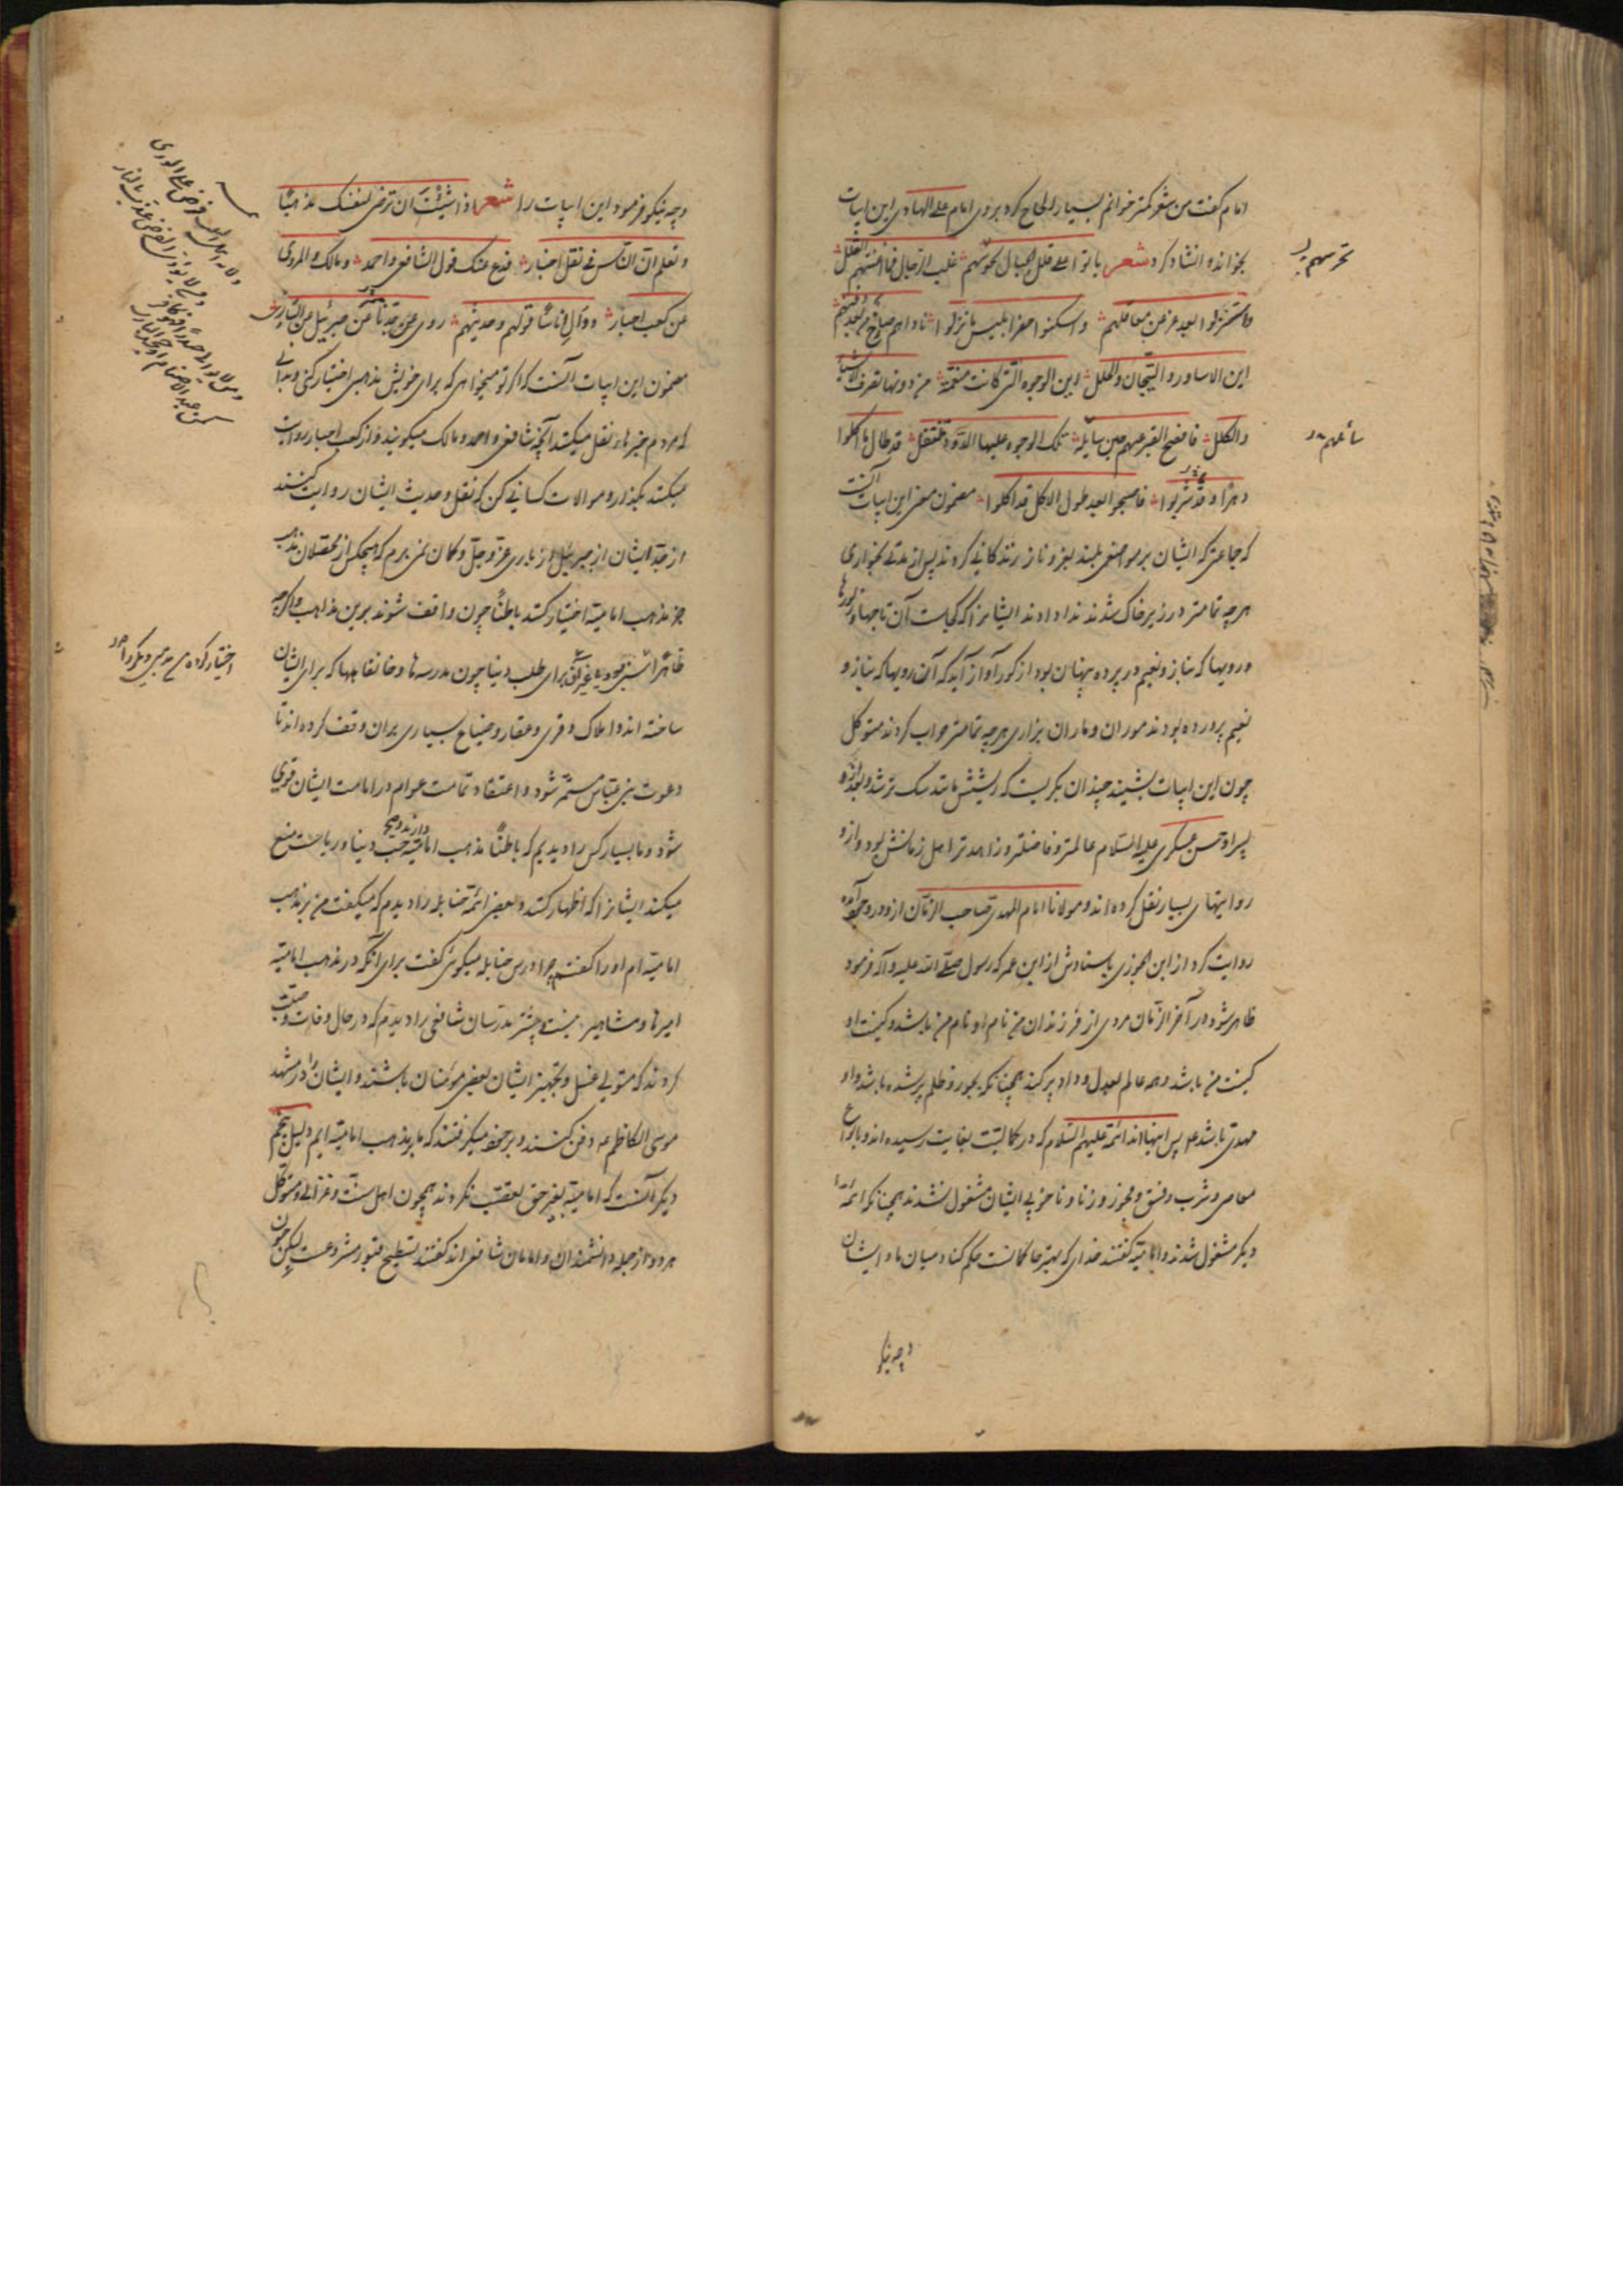 امام گفت من شعر کمتر خوانم بسیار الحاح کرد بروی امام علی الهادی این ابیات
بخواند و انشاد کرد شعر باتوا علی قلل الجبال تحرسهم غلب الرجال فما اغنتهم القلل
واستنزلوا بعد عز عن معاقلهم واسکنوا حفرا بئس ما نزلوا ناداهم صارخ من بعد دفنهم
این الاساور و التیجان والحلل این الوجوه التی کانت منعمة من دونها تضرب الاستار
والکلل فافصح القبر عنهم حین سایله تلک الوجوه علیها الدود تنتقل قد طال ما اکلوا
دهرا وقد شربوا فاصبحوا بعد طول الاکل قد اکلوا مضمون معنی این ابیات آنست
که جماعتی که ایشان بر مواضعی بلند بعز و ناز زندکانی کردند پس از مدتی بخواری
هر چه تمامتر در زیر خاک شدند ندا دادند ایشانرا که کجاست آن تاجها و زیورها
و رویها که بناز و نعیم در پرده پنهان بود از کور آواز آید که آن رویها که بناز و
نعیم پرورده بودند موران و ماران بزاری هر چه تمامتر خراب کردند متوکل
چون این ابیات بشنید چندان بکریست که ریشش باشک تر شد و بعد ازو
پسر او حسن عسکری علیه السلام عالمتر و فاضلتر و زاهدتر اهل زمانش بود و ازو
روایتهای بسیار نقل کرده اند و مولانا امام المهدی صاحب الزمان ازو در وجود آمده
روایت کرد از ابن الجوزی باسنادش از ابن عمر که رسول صلی الله علیه و آله فرمود
ظاهر شود در آخر الزمان مردی از فرزندان من نام او نام من باشد و کنیت او
کنیت من باشد و همه عالم بعدل و داد پر کند همچنانکه بجور و ظلم پر شده باشد و او
مهدی باشد پس اینها اند ائمه علیهم السلام که در کمالیت بغایت رسیده اند و بانواع
معاصی و شرب و فسق و فجور و زنا و ناخوبی ایشان مشغول نشدند همچنانکه ائمه
دیگر مشغول شدند و امامیه گفتند خدای که بهتر حاکمانست حکم کناد میان ما و ایشان
و چه نیکو
وچه نیکو فرمود این ابیات را شعر اذا شئت ان ترضی لنفسک مذهبا
وتعلم ان الناس فی نقل اخبار فدع عنک قول الشافعی واحمد ومالک والمروی
عن کعب احبار ووال اناسا قولهم وحدیثهم روی جدنا عن جبرئیل عن الباری
مضمون این ابیات آنست که اگر تو میخواهی که برای خویش مذهبی اختیار کنی و بدانی
که مردم خبرها نقل میکنند آنچه شافعی و احمد و مالک میکویند و از کعب احبار روایت
میکنند بکذار و موالات کسانی کن که نقل و حدیث ایشان روایت کنند
از جد ایشان از جبرئیل از باری عز و جل و کمان نمی برم که هیچکس از محصلان مذهب
جز مذهب امامیه اختیار کنند باطنا چون واقف شوند برین مذاهب و اگر چه
ظاهرا برای طلب دنیا چون مدرسه ها و خانقاهها که برای ایشان
ساخته اند و املاک و قری و عقار و ضیاع بسیاری بران وقف کرده اند تا
دعوت بنی عباس مستمر شود و اعتقاد تمامت عوام در امامت ایشان قوی
شود و ما بسیار کس را دیدیم که باطنا مذهب امامیه دارند و حب دنیا و ریاست منع
میکند ایشانرا که اظهار کنند و بعضی ائمه حنابله را دیدم که میکفت من بر مذهب
امامیه ام او را گفتم چرا درس حنابله میکوئی گفت برای آنکه در مذهب امامیه
امیرها و مشاهیر نیست و بیشتر مدرسان شافعی را دیدم که در حال وفات وصیت
کردند که متولی غسل و تجهیز ایشان بعضی مومنان باشند و ایشان را در مشهد
موسی الکاظم دفن کنند و میکفتند که ما بر مذهب امامیه ایم دلیل پنجم
دیگر آنست که امامیه بغیر حق تعصب نکردند همچون اهل سنت و غزالی و متوکل
هر دو از جمله دانشمندان و امامان شافعی اند گفتند تسطیح قبور مشروعست لیکن چون
تحرسهم
سائلهم
اختیار کرده مذهبی دیگر را